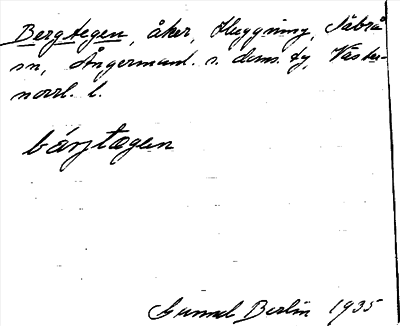 Bergstegen, åker, Hyggning, Näbrå
sn, Ångermanl. s. doms. tg, Väster-
norrl. l.
bárjtægen
Gunnel Berlin 1935